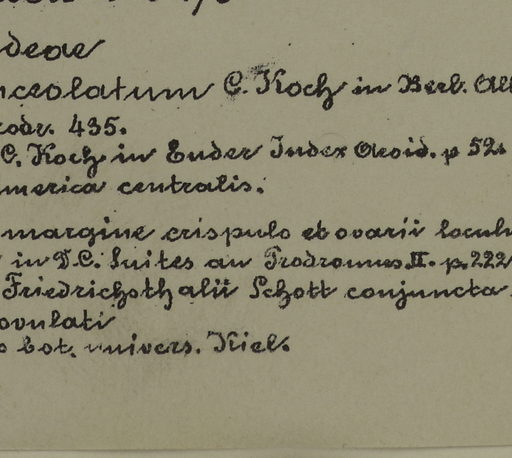 deae
nceolatum C. Koch in Berl. All
rodr. 435.
C. Koch in Ender Index Aroid. p 52.
merica centralis.
margine crispulo et ovarii locul
in D.C. Suites au Prodromus. II. p. 222
Friedrichsthalii Schott conjuncta.
ovulati
o bot. univers. Kiel.